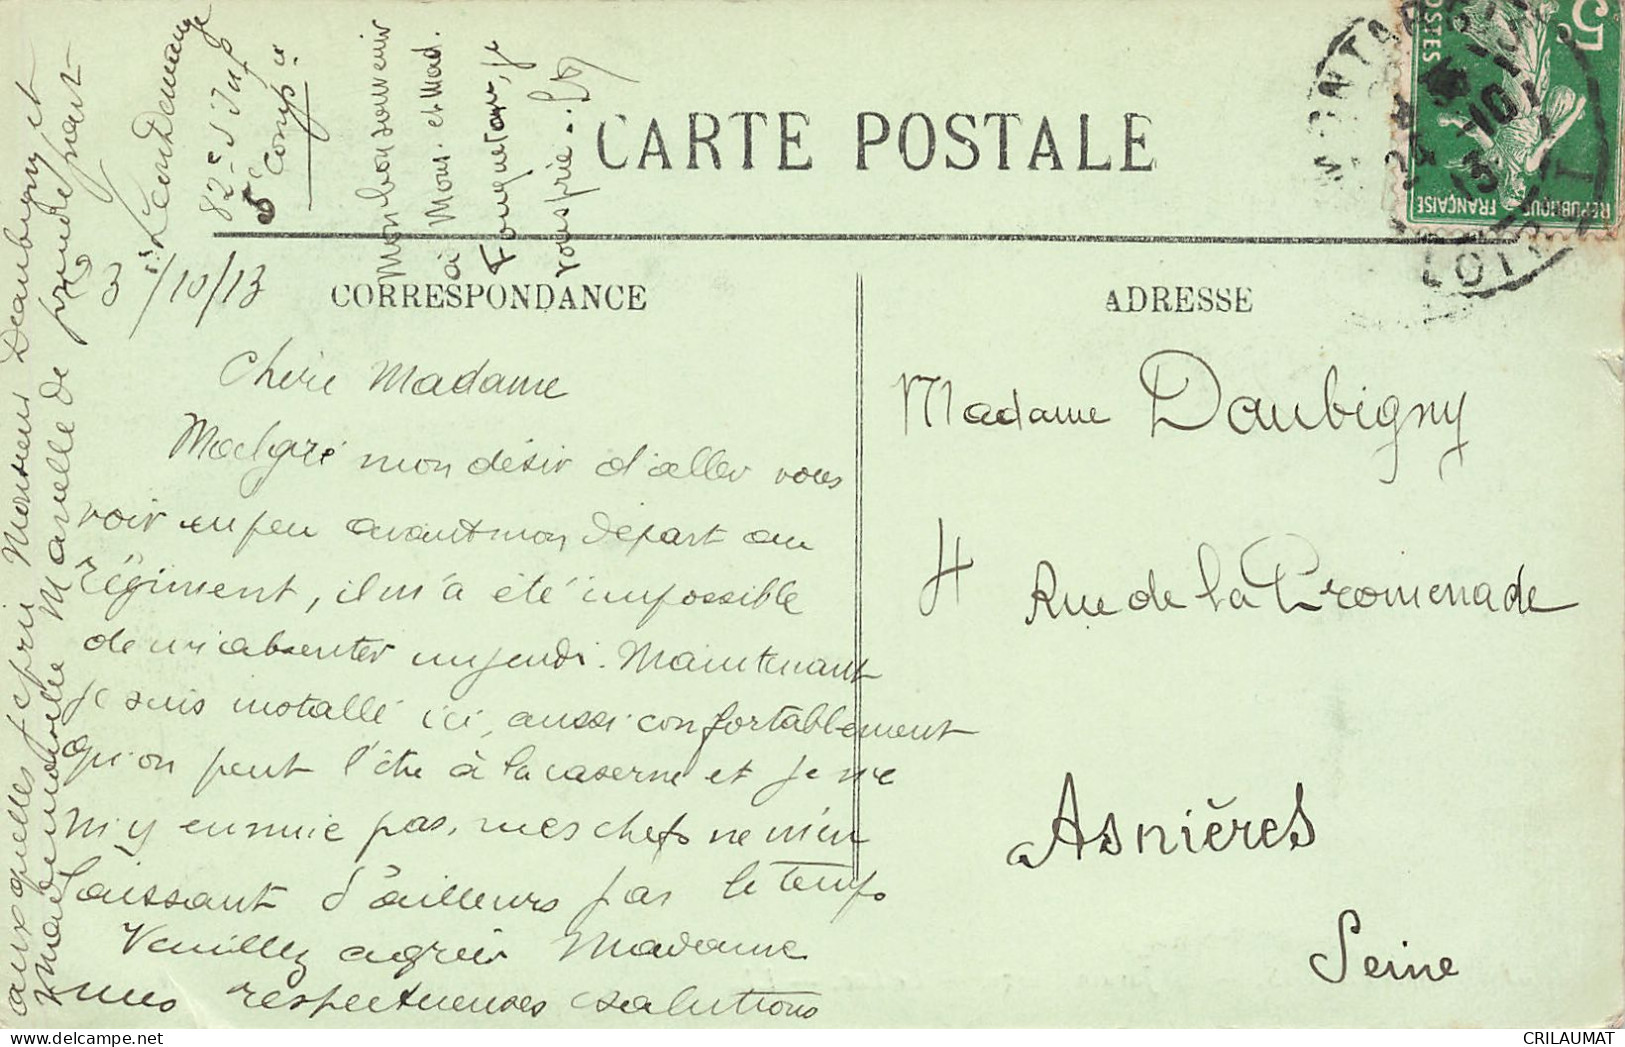 CARTE POSTALE
CORRESPONDANCE
ADRESSE
5c
POSTES
REPUBLIQUE FRANÇAISE
MONTARGIS
24 10 13
LOIRET
3/10/13
Chère Madame
Malgré mon désir d'aller vous
voir un peu avant mon départ au
régiment, il m'a été impossible
de m'absenter un jeudi. Maintenant
je suis installé ici, aussi confortablement
qu'on peut l'être à la caserne et je ne
m'y ennuie pas, mes chefs ne m'en
laissant d'ailleurs pas le temps
Veuillez agréer Madame
mes respectueuses salutations
auxquelles je prie Monsieur Daubigny et
Mademoiselle Marcelle de prendre part
Léon Demange
82e d'Inf
5e Compie
Mon bon souvenir
à Mons. et Mad.
je
vous prie.
Madame Daubigny
4 Rue de la Promenade
Asnières
Seine
CRILAUMAT